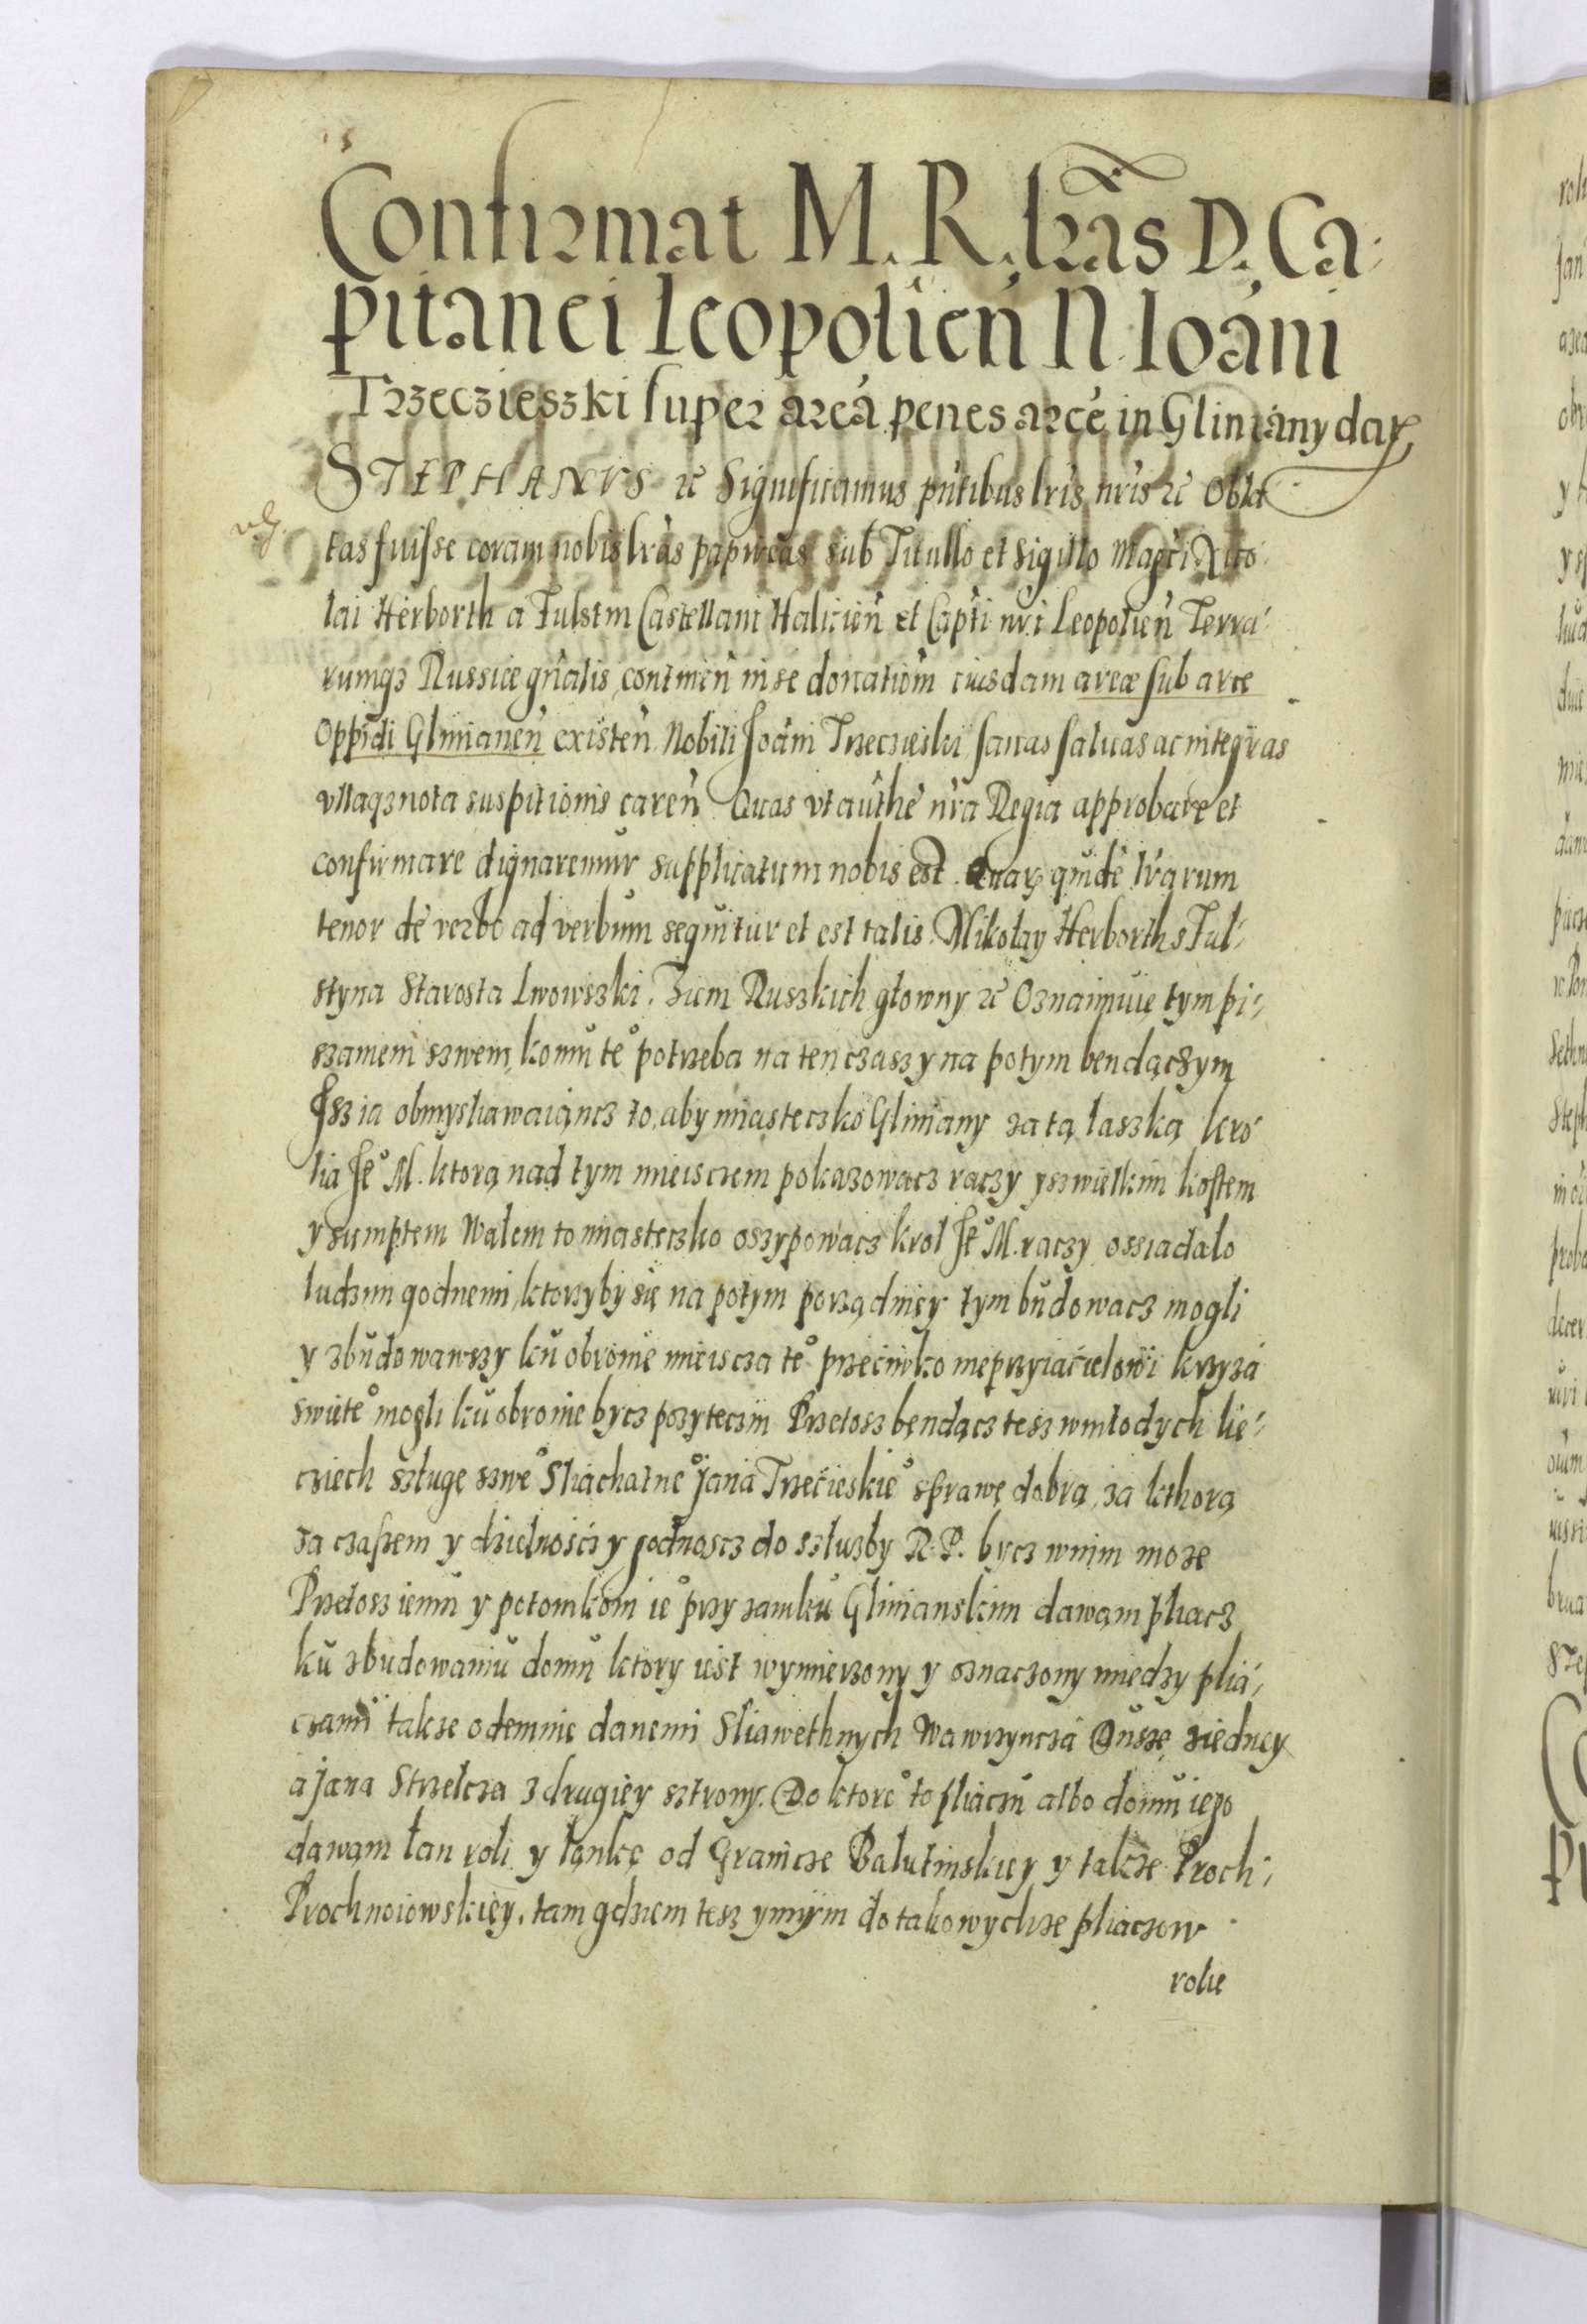 Confirmat M. R. lr̃as D. Ca-
pitanei Leopolien̄ N. Ioāni
Trzeczieszki super areā penes arcē in Gliniany daꝝ
STEPHANVS ꝛc Significamus pñtibus lr̃is nr̃is ꝛc Obla
tas fuisse coram nobis lr̃as papireas sub Titullo et Sigillo Magci Nico
lai Herborth a Fulstin Castellani Halicien̄ et Capti nr̃i Leopolien̄ Terra-
rumqꝫ Russice gnãlis contineñ in se donatiom̄ cuisdam areæ sub arce
Oppidi Glinianeñ existeñ Nobili Joāni Trzeczieski sanas saluas ac integras
vllaqꝫ nota suspitionis careñ Quas vt authē nr̃a Regia approbare et
confirmare dignaremur supplicatum nobis est. Quaꝝ quidē lr̃arum
tenor dē verbo ad verbum sequitur et est talis. Mikołay Herborth s Ful-
styna Starosta Lwowszki. Ziem Ruszkich głowny ꝛc Oznaimuie tym pi-
szamem szwem, komu te° potrzeba na ten czasz y na potym bendączym
Jsz ia obmyśliawaiąncz to, aby miasteczko Gliniany za tą laszką kro-
lia Je° M. ktorą nad tym mieisczem pokazowacz raczy y szwielkim kostem
y sumptem Wałem to miasteczko oszypowacz krol Je° M. raczy ossiadalo
ludzmi godnemi, ktorzyby się na potym porządniey tym budowacz mogli
y zbudowawszy ku obronie mieiscza te° przeciwko nieprzyiacielowi krzyża
swiete° mogli ku obronie bycz pozyteczni Przetosz bendącz tesz w młodych lie-
cziech szługę szwe° Sliachatne° Jana Trzecieskie° sprawę dobrą, za kthorą
za czaszem y dzielnoscz y godnoscz do szluzby R. P. bycz w nim moze
Przetosz iemu y potomkom ie° przy zamku Glinianskim dawam pliacz
ku zbudowaniu domu ktory iest wymierzony y oznaczony miedzy plia-
czami takze odemnie danemi Sliawethnych Wawrzyncza Dusze z iedney
a Jana Strzelcza z drugiey sztrony. Do ktore° to pliaczu albo domu iego
dawam łan roli y łąnkę od Granicze Balutinskiey y takze Proch-
Prochnoiowskiey, tam gdziem tesz ynnym do takowychze pliaczow
rolie